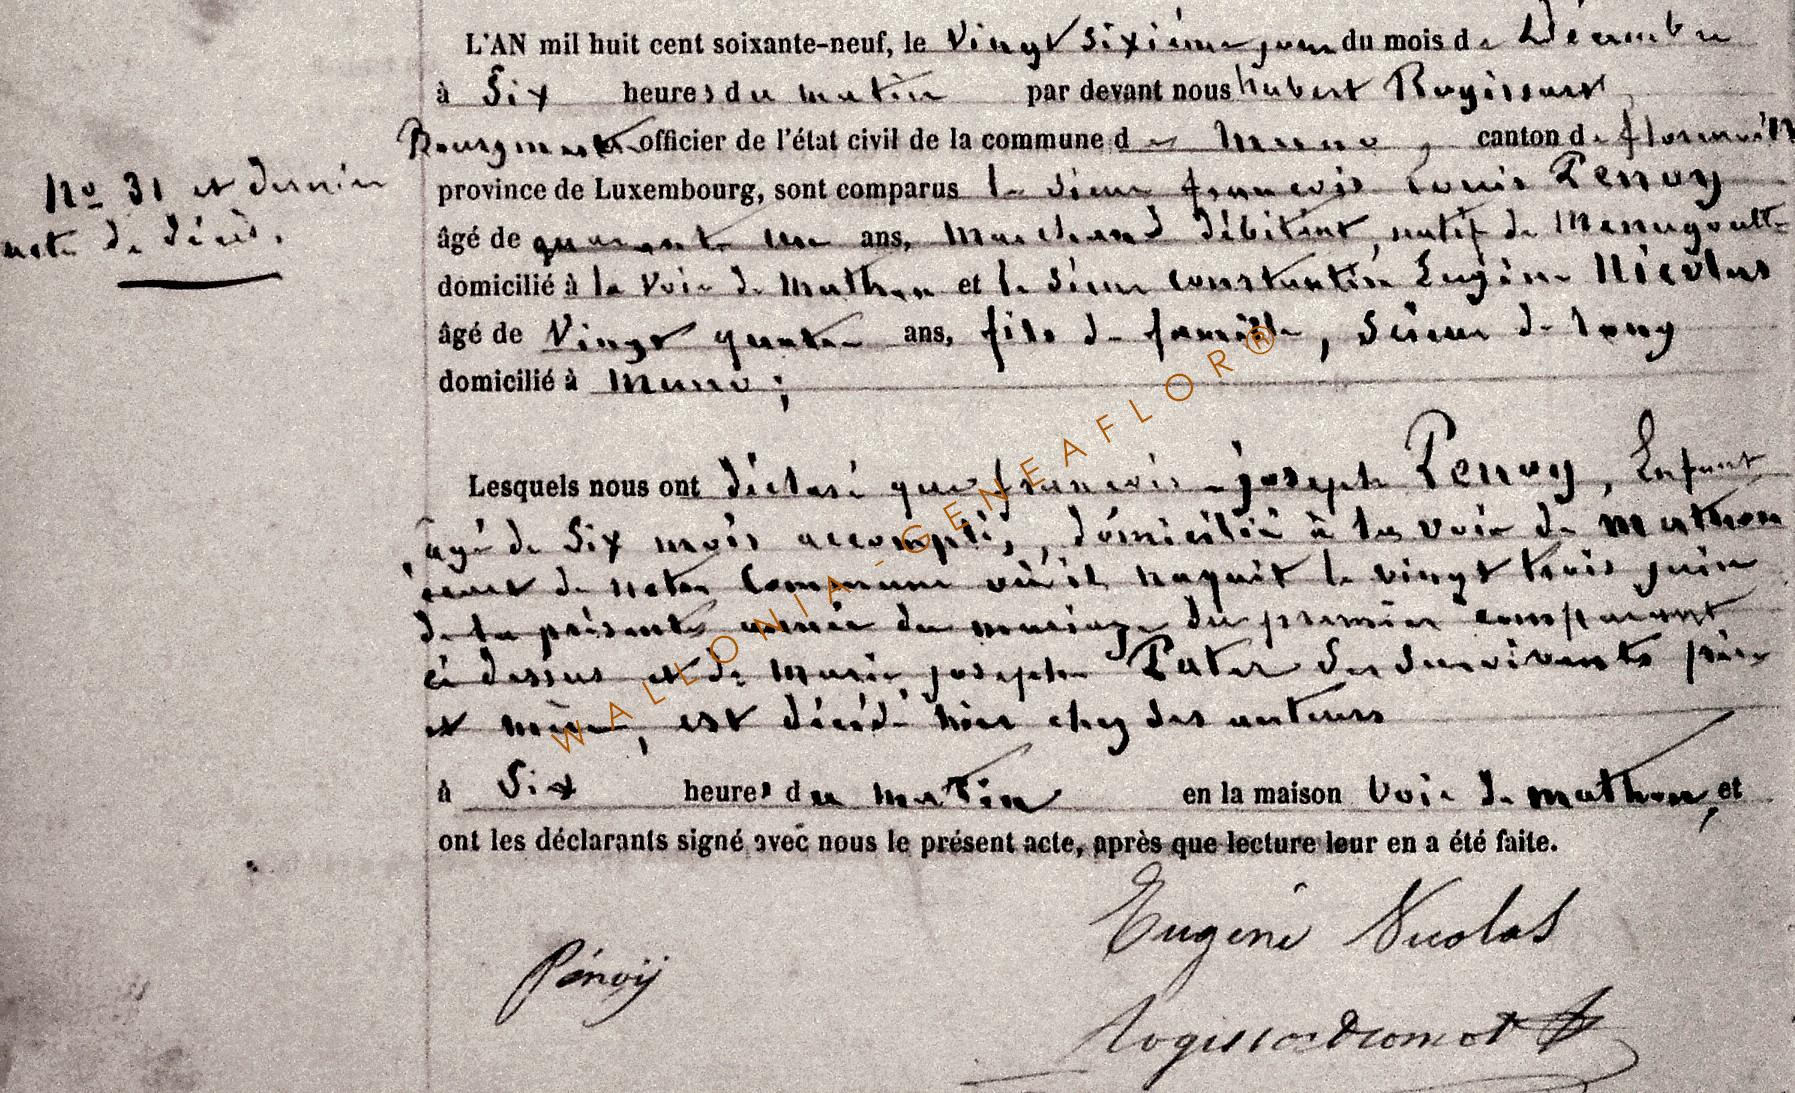 L'AN mil huit cent soixante-neuf, le vingt sixième jour du mois de Décembre
à Six heures du matin par devant nous hubert Rogissart
Bourgmestre officier de l'état civil de la commune de Muno, canton de florenville
province de Luxembourg, sont comparus le sieur françois Louis Penoy
âgé de quarante un ans, Marchand débitant, natif de
domicilié à la Voie de Mathon et le sieur constantin Eugène Nicolas
âgé de Vingt quatre ans, fils de famille, Scieur de long
domicilié à Muno;
No 31 et dernier
acte de décès.
Lesquels nous ont déclaré que françois-joseph Penoy, Enfant
âgé de Six mois accomplis, domicilié à la voie de mathon
écart de notre Commune où il naquit le vingt trois juin
de la présente année du mariage du premier comparant
ci dessus et de Marie joseph Pater ses survivants père
et mère, est décédé hier chez ses auteurs
à Six heures du matin en la maison Voie de mathon, et
ont les déclarants signé avec nous le présent acte, après que lecture leur en a été faite.
Eugène Nicolas
Pénoÿ
WALLONIA - GENEAFLOR®